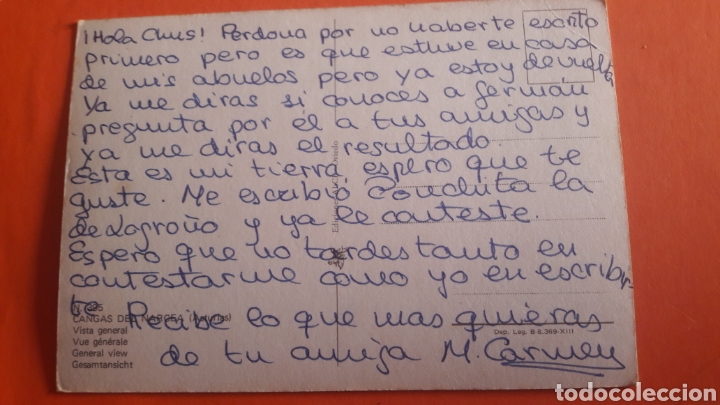 ¡Hola Chus! Perdona por no haberte escrito
primero pero es que estuve en casa
de mis abuelos pero ya estoy de vuelta
Ya me diras si conoces a Germán
pregunta por él a tus amigas y
ya me diras el resultado.
Esta es mi tierra, espero que te
guste. Me escribió Conchita la
de Logroño y ya le conteste.
Espero que no tardes tanto en
contestarme como yo en escribir-
te. Recibe lo que mas quieras
de tu amiga M. Carmen
CANGAS DEL NARCEA (Asturias)
Vista general
Vue générale
General view
Gesamtansicht
Dep. Leg. B 8.369-XIII
todocoleccion.net